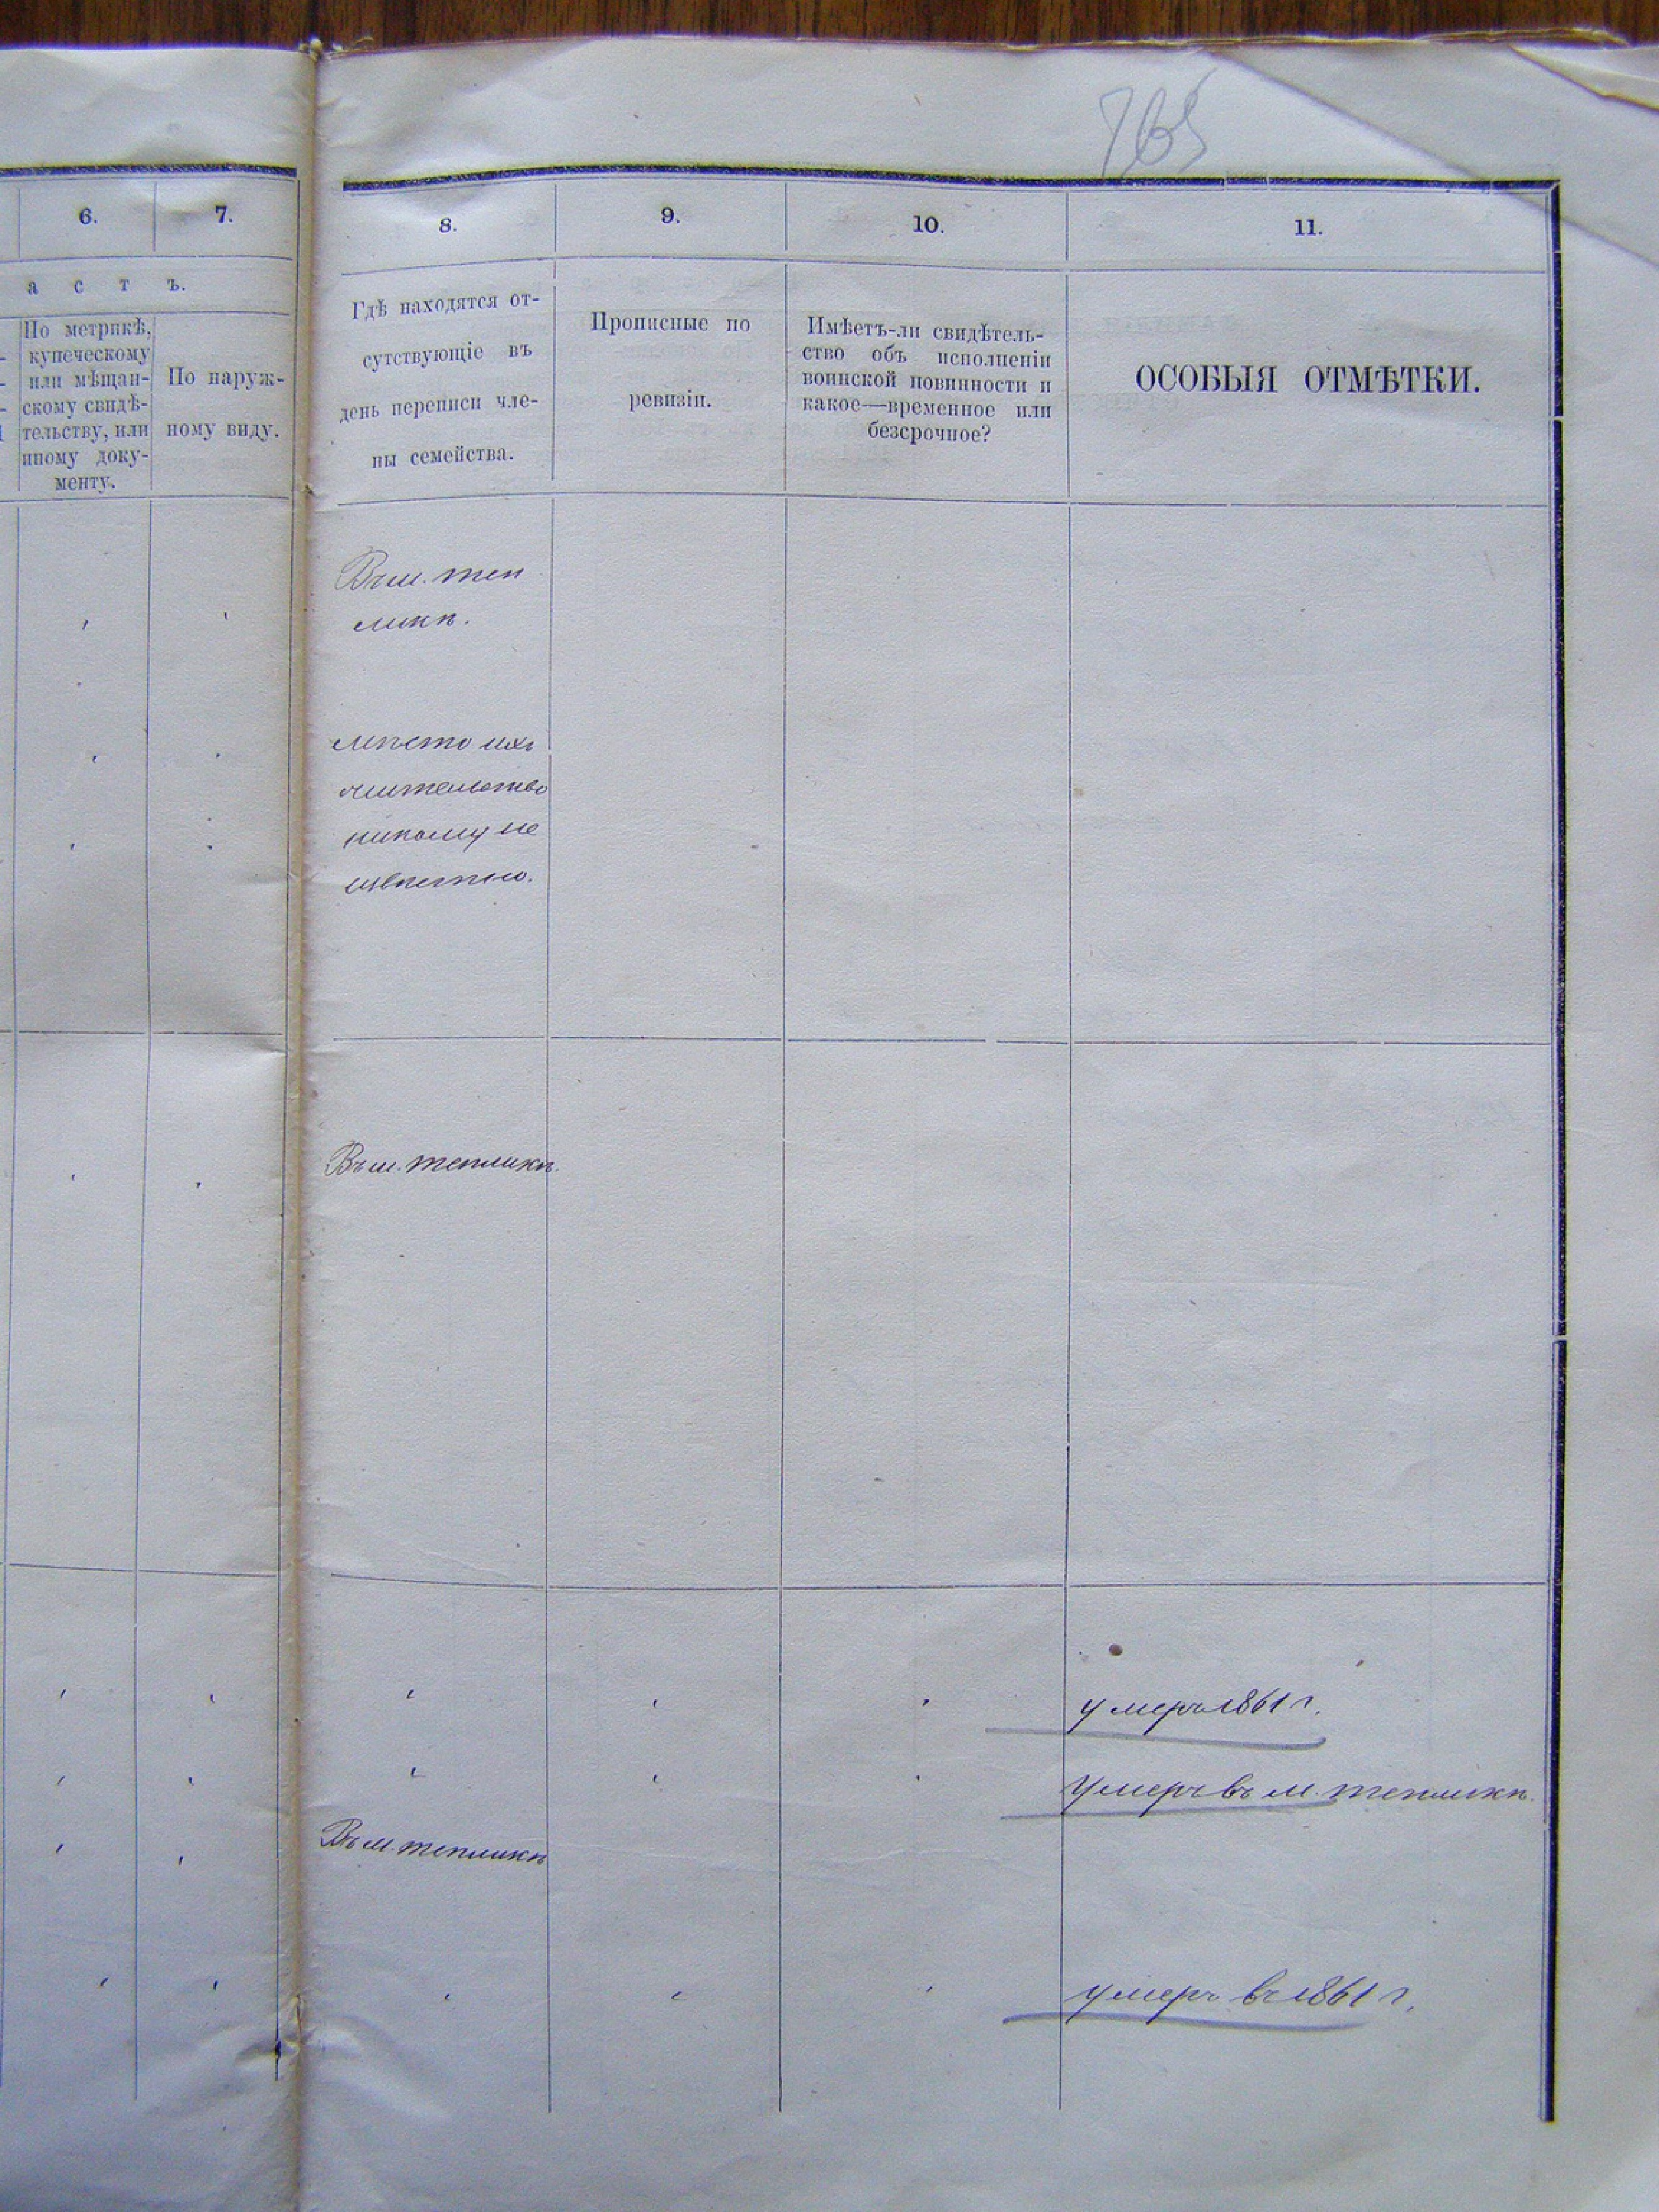 765
6.
7.
8.
9.
10.
11.
а с т ъ.
По метрикѣ,
купеческому
или мѣщан-
скому свидѣ-
тельству, или
иному доку-
менту.
По наруж-
ному виду.
Гдѣ находятся от-
сутствующіе въ
день переписи чле-
ны семейства.
Прописные по
ревизіи.
Имѣетъ-ли свидѣтель-
ство объ исполненіи
воинской повинности и
какое—временное или
безсрочное?
ОСОБЫЯ ОТМѢТКИ.
Въ м. теп
ликѣ.
мѣсто ихъ
жительство
никому не
извѣстно.
Въ м. тепликѣ.
умеръ 1861 г.
Умеръ въ м. тепликѣ.
Въ м. тепликѣ
умеръ въ 1861 г.